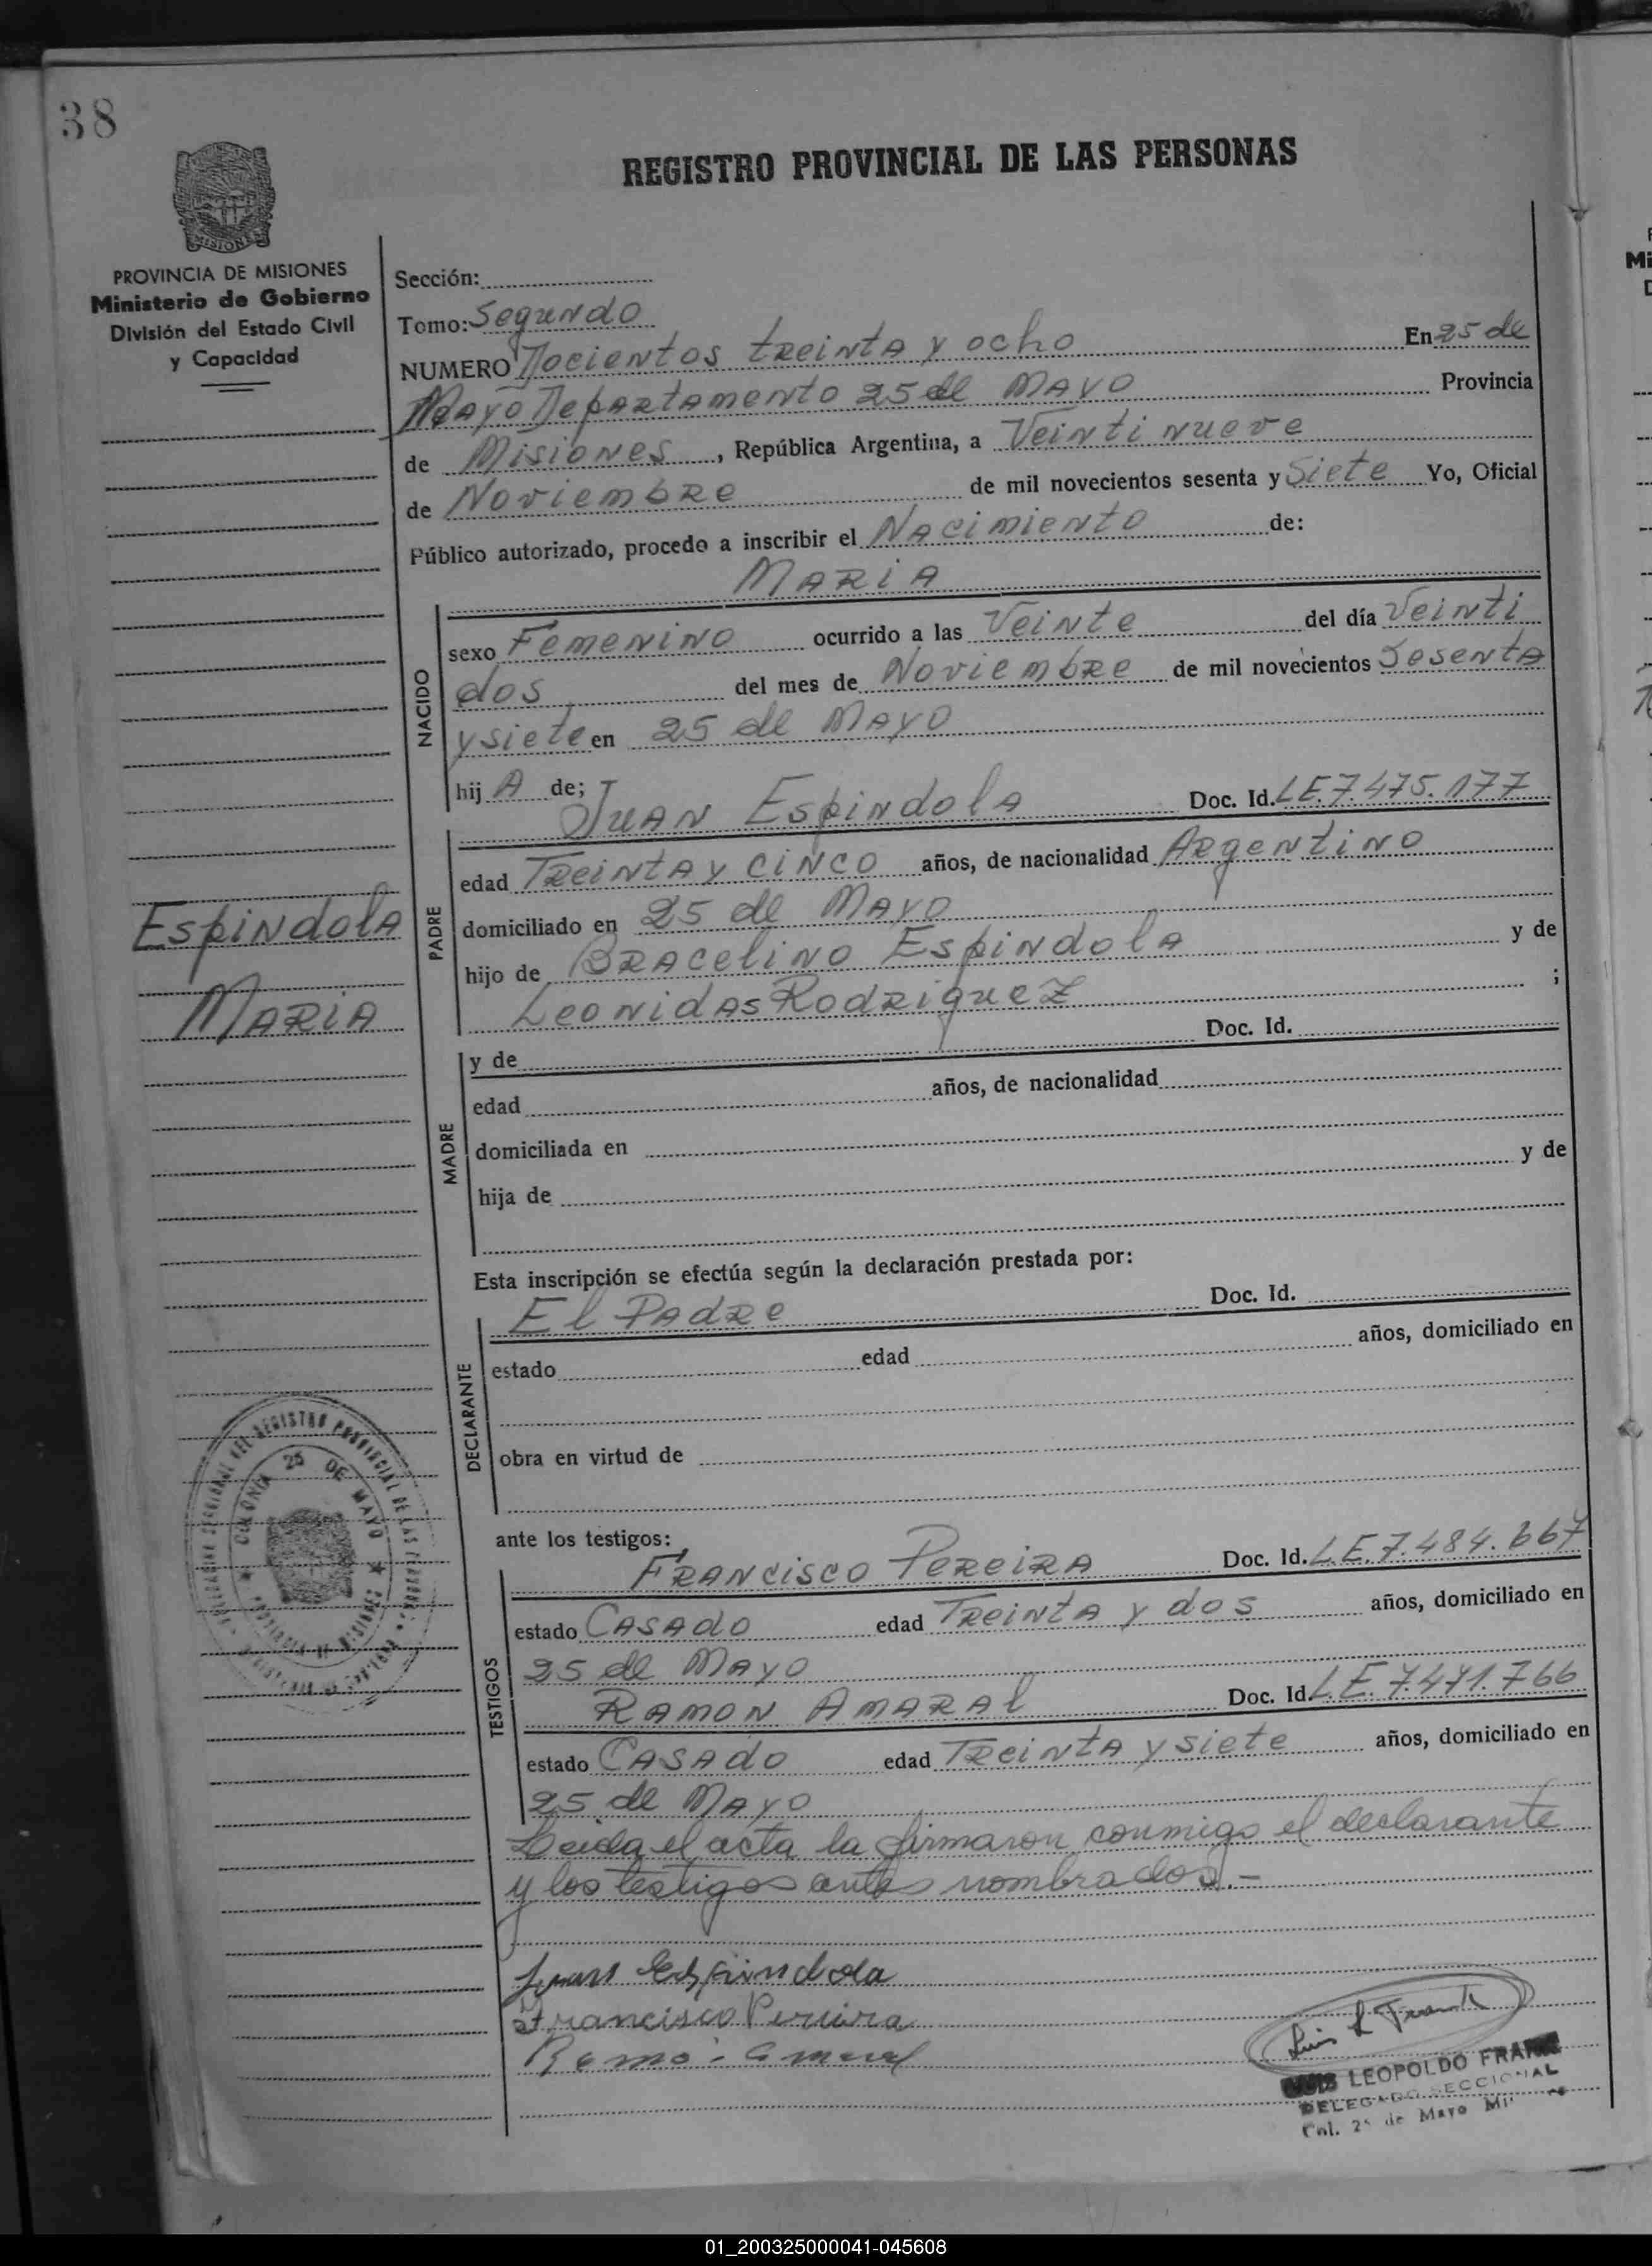 38
REGISTRO PROVINCIAL DE LAS PERSONAS
MISIONES
PROVINCIA DE MISIONES
Ministerio de Gobierno
División del Estado Civil
y Capacidad
Sección:
Tomo: Segundo
NUMERO Docientos treinta y ocho En 25 de
Mayo Departamento 25 de Mayo Provincia
de Misiones, República Argentina, a Veinti nueve
de Noviembre de mil novecientos sesenta y Siete Yo, Oficial
Público autorizado, procedo a inscribir el Nacimiento de:
MARIA
NACIDO
sexo Femenino ocurrido a las Veinte del día Veinti
dos del mes de Noviembre de mil novecientos Sesenta
y siete en 25 de Mayo
hij A de;
Juan Espindola Doc. Id. LE.7.475.177
PADRE
edad Treinta y cinco años, de nacionalidad Argentino
domiciliado en 25 de Mayo
hijo de Bracelino Espindola y de
Leonidas Rodriguez ;
Espindola
Maria
y de Doc. Id.
MADRE
edad años, de nacionalidad
domiciliada en
hija de y de
Esta inscripción se efectúa según la declaración prestada por:
El Padre Doc. Id.
DECLARANTE
estado edad años, domiciliado en
obra en virtud de
DEL REGISTRO PROVINCIAL DE LAS
COLONIA 25 DE MAYO
ante los testigos:
Francisco Pereira Doc. Id. L.E.7.484.667
TESTIGOS
estado Casado edad Treinta y dos años, domiciliado en
25 de Mayo
Ramon Amaral Doc. Id. L.E.7.471.766
estado Casado edad Treinta y siete años, domiciliado en
25 de Mayo
Leida el acta la firmaron conmigo el declarante
y los testigos antes nombrados.-
Juan Espindola
Francisco Pereira
Luis L Frank
LEOPOLDO FRANK
DELEGADO SECCIONAL
Col. 25 de Mayo
01_200325000041-045608